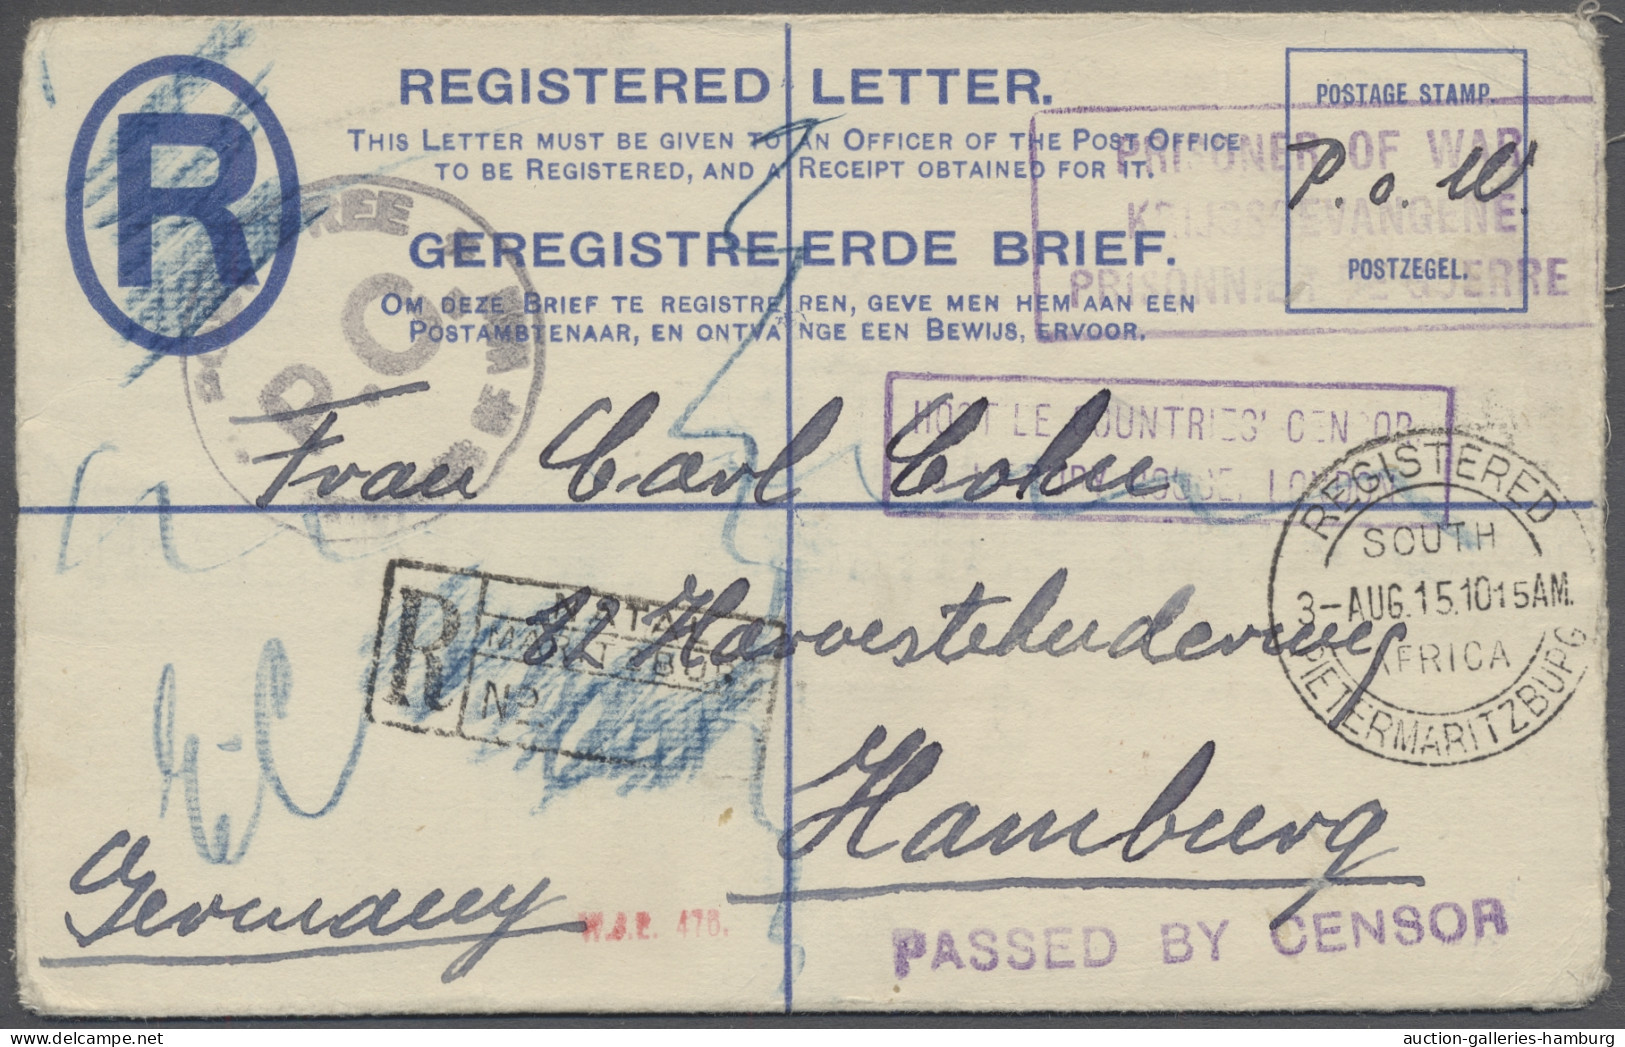 R
REGISTERED LETTER.
THIS LETTER MUST BE GIVEN TO AN OFFICER OF THE POST OFFICE
TO BE REGISTERED, AND A RECEIPT OBTAINED FOR IT.
GEREGISTREERDE BRIEF.
OM DEZE BRIEF TE REGISTREREN, GEVE MEN HEM AAN EEN
POSTAMBTENAAR, EN ONTVANGE EEN BEWIJS, ERVOOR.
POSTAGE STAMP.
P. o. W.
POSTZEGEL.
PRISONER OF WAR
KRIJGSGEVANGENE
PRISONNIER DE GUERRE
HOSTILE COUNTRIES' CENSOR
HOUSE, LONDON
Frau Carl Cohn
82 Harvestehuderweg
Hamburg
Germany
R
NATAL
MARITZBURG
No
REGISTERED
SOUTH
3-AUG.15.1015AM.
AFRICA
PIETERMARITZBURG
PASSED BY CENSOR
auction-galleries-hamburg